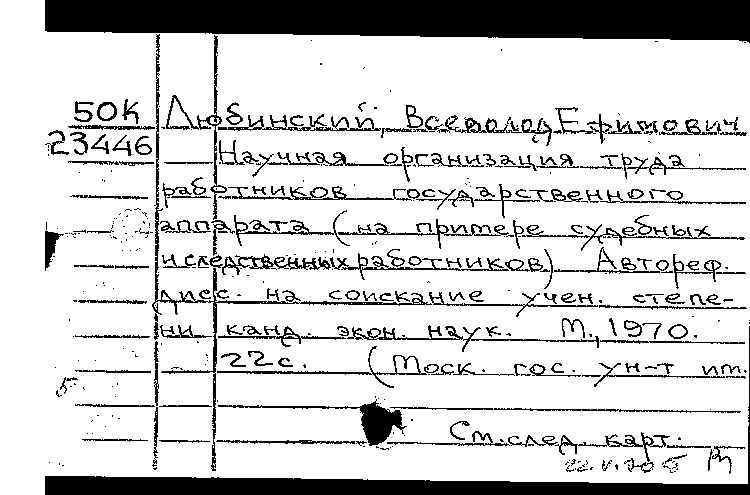 50К Любинский, Всеволод Ефимович
23446 Научная организация труда
работников государственного
аппарата (на примере судебных
и следственных работников) Автореф.
дисс. на соискание учен. степе-
ни канд. экон. наук. М., 1970.
22 с. (Моск. гос. ун-т им.
5
См. след. карт.
22.V.70 Б